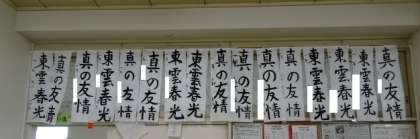 東雲春光
真の友情
真の友情
東雲春光
真の友情
真の友情
東雲春光
東雲春光
真の友情
真の友情
東雲春光
真の友情
東雲春光
東雲春光
東雲春光
真の友情